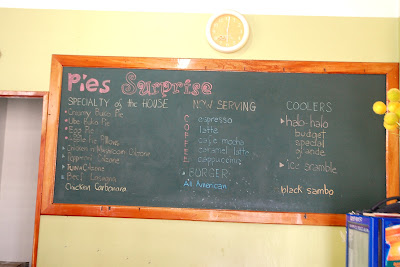 Pies Surprise
SPECIALTY of the HOUSE
Creamy Buko Pie
Ube Buko Pie
Egg Pie
Apple Pie Pillows
Chicken n' Mushroom
Tuna
Beef Lasagna
Chicken Carbonara
NOW SERVING
COFFEE
espresso
latte
cafe mocha
caramel latte
cappuccino
BURGER
All American
COOLERS
halo-halo
budget
special
grande
ice scramble
black sambo